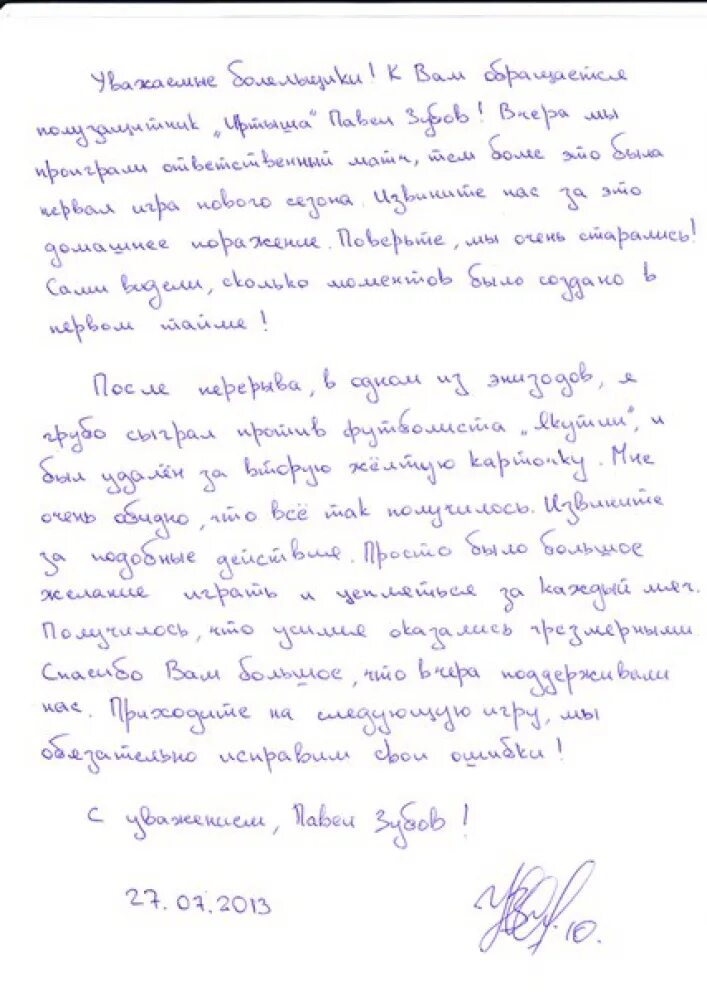 Уважаемые болельщики! К Вам обращается
полузащитник „Иртыша" Павел Зубов! Вчера мы
проиграли ответственный матч, тем более это была
первая игра нового сезона. Извините нас за это
домашнее поражение. Поверьте, мы очень старались!
Сами видели, сколько моментов было создано в
первом тайме!
После перерыва, в одном из эпизодов, я
грубо сыграл против футболиста „Якутии", и
был удалён за вторую жёлтую карточку. Мне
очень обидно, что всё так получилось. Извините
за подобные действия. Просто было большое
желание играть и цепляться за каждый мяч.
Получилось, что усилия оказались чрезмерными.
Спасибо Вам большое, что вчера поддерживали
нас. Приходите на следующую игру, мы
обязательно исправим свои ошибки!
С уважением, Павел Зубов!
27.07.2013
10.